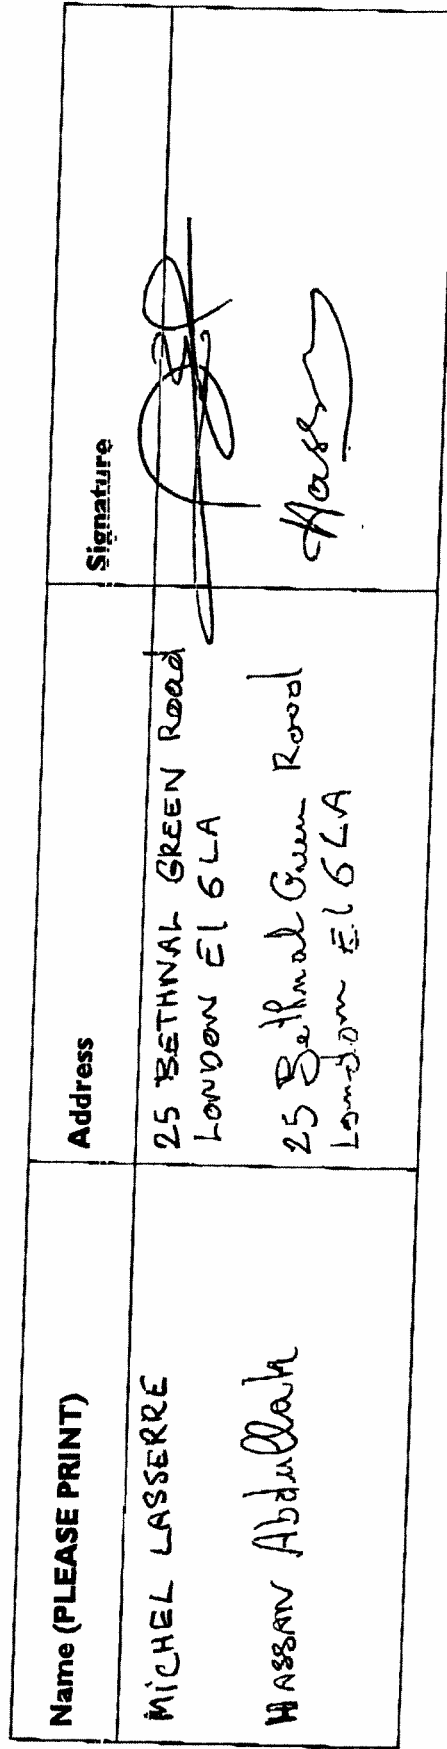 Name (PLEASE PRINT) Address Signature
MICHEL LASSERRE 25 BETHNAL GREEN Road
LONDON E1 6LA
HASSAN Abdullah 25 Bethnal Green Road Hassan
London E1 6LA